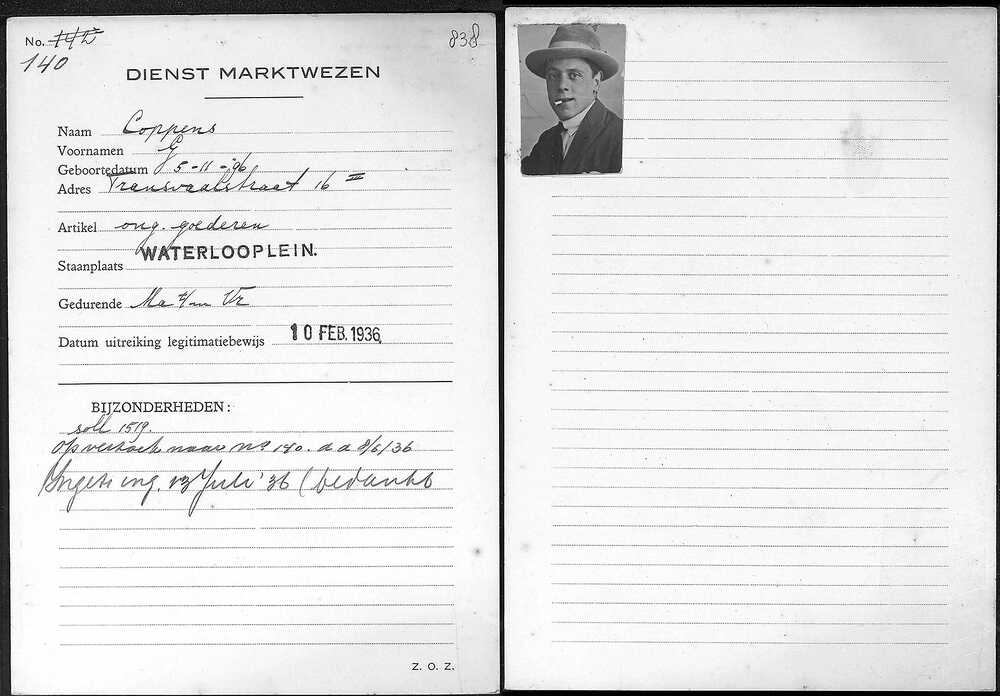 No. 142
838
140
DIENST MARKTWEZEN
Naam Coppens
Voornamen G
Geboortedatum 5-11-96
Adres Transvaalstraat 16 II
Artikel ong. goederen
WATERLOOPLEIN.
Staanplaats
Gedurende Ma t/m Vr
Datum uitreiking legitimatiebewijs 10 FEB. 1936.
BIJZONDERHEDEN:
soll 1519.
Op verzoek naar no 140. d.d 8/6/36
ing. 13 Juli '36 (bedankt
Z. O. Z.